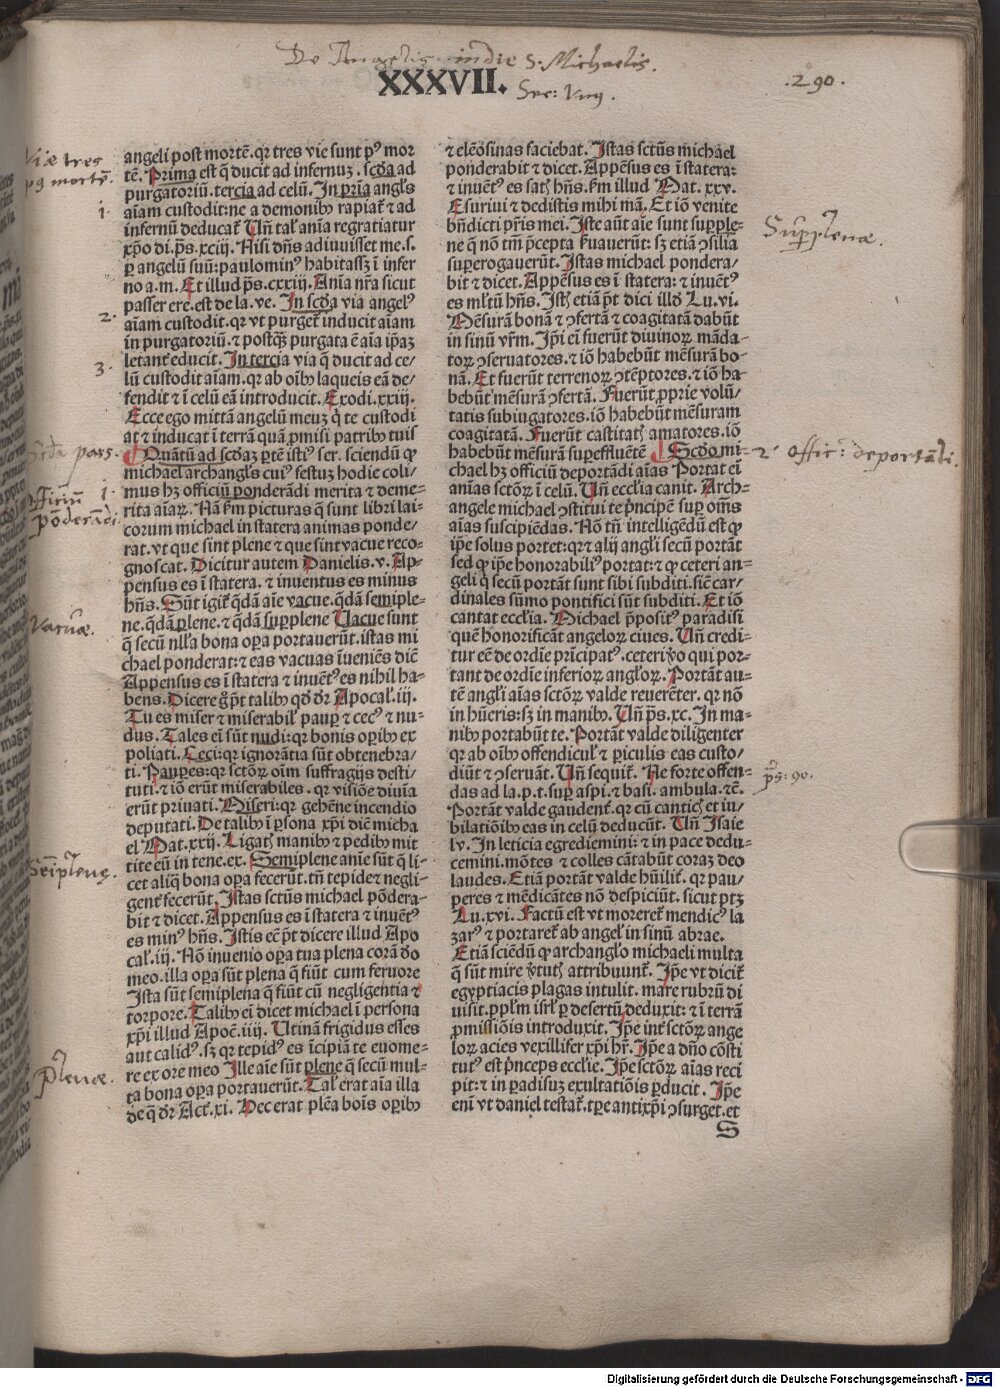 De Angelis in die S. Michaelis.
XXXVII.
Ser: Vnꝰ.
.290.
angeli post mortē. qr tres vie sunt pꝰ mor
tē. Prima est q̄ ducit ad infernuꝫ. scḋa ad
purgatoriū. tercia ad celū. In pria angłs
aīam custodit: ne a demonibꝰ rapiat̄ ⁊ ad
infernū deducat̄ Uñ tał anīa regratiatur
xp̄o di. ps. xciij. Nisi dñs adiuuisset me. s.
ꝑ angelū suū: paulominꝰ habitassꝫ ī infer
no a. m. Et illud ps. cxxiij. Anīa nr̄a sicut
passer ere. est de la. ve. In scḋa via angelꝰ
aīam custodit. qr vt purget̄ inducit aīam
in purgatoriū. ⁊ postqꝫ purgata ē aīa ip̄aꝫ
letant̄ educit. In tercia via q̄ ducit ad ce/
lū custodit aīam. qr ab oībꝰ laqueis eā de/
fendit ⁊ ī celū eā introducit. Exodi. xxiij.
Ecce ego mittā angelū meuꝫ q̇ te custodi
at ⁊ inducat ī terrā quā ꝓmisi patribꝰ tuis
Quātū ad scḋaꝫ ꝑtē istiꝰ ser. sciendū ꝙ
michael archangłs cuiꝰ festuꝫ hodie coli/
mus hꝫ officiū ponderādi merita ⁊ deme-
rita aīaꝝ. Nā ẜm picturas q̄ sunt libri lai-
corum michael in statera animas ponde/
rat. vt que sint plene ⁊ que sint vacue reco-
gnoscat. Dicitur autem Danielis. v. Ap-
pensus es ī statera. ⁊ inuentus es minus
hñs. Sūt igit̄ q̄dā aīe vacue. q̄dā semiple-
ne. q̄dā plene. ⁊ q̄dā suꝑplene Uacue sunt
q̄ secū nłła bona oꝑa portauerūt. istas mi
chael ponderat: ⁊ eas vacuas īueniēs diē
Appensus es ī statera ⁊ inuētꝰ es nihil ha-
bens. Dicere g̊ pt̄ talibꝰ qḋ dr̄ Apocał. iij.
Tu es miser ⁊ miserabił pauꝑ ⁊ cecꝰ ⁊ nu-
dus. Tales ei̅ sūt nudi: qr bonis oꝑibꝰ ex
poliati. Ceci: qr ignorātia sūt obtenebra/
ti. Pauꝑes: qr sctōꝝ oīm suffragijs desti/
tuti. ⁊ iō erūt miserabiles. qr visiōe diuīa
erūt priuati. Miseri: qr gehēne incendio
deputati. De talibꝰ ī ꝑsona xp̄i diē micha
el Mat. xxij. Ligatꝭ manibꝰ ⁊ pedibꝰ mit
tite eū in tene. ex. Semiplene anīe sūt q̄ li-
cet aliq̄ bona oꝑa fecerūt. tn̄ tepide ⁊ negli-
gent̄ fecerūt. Istas sctūs michael pōdera-
bit ⁊ dicet. Appensus es ī statera ⁊ inuētꝰ
es minꝰ hñs. Istis ec̄ pt̄ dicere illud Apo
cał. iij. Nō inuenio oꝑa tua plena corā ḋo
meo. illa oꝑa sūt plena q̄ fiūt cum feruore
Ista sūt semiplena q̄ fiūt cū negligentia ⁊
torpore. Talibꝰ ei̅ dicet michael ī ꝑsona
xp̄i illud Apoc̄. iiij. Utinā frigidus esses
aut calidꝰ. sꝫ qr tepidꝰ es īcipiā te euome-
re ex ore meo Ille aīe sūt plene q̄ secū mul-
ta bona oꝑa portauerūt. Tał erat aīa illa
de q̄ dr̄ Act̄. xi. Hec erat plēa boīs oꝑibꝰ
⁊ elēosinas faciebat. Istas sctūs michael
ponderabit ⁊ dicet. Appēsus es ī statera:
⁊ inuētꝰ es satꝭ hñs. ẜm illud Mat. xxv.
Esuriui ⁊ dedistis mihi mā. Et iō venite
bn̄dicti pr̄is mei. Iste aūt aīe sunt suꝑple-
ne q̄ nō tm̄ p̄cepta ẜuauerūt: sꝫ etiā ꝯsilia
suꝑerogauerūt. Istas michael pondera/
bit ⁊ dicet. Appēsus es ī statera: ⁊ inuētꝰ
es młtū hñs. Istꝭ etiā pt̄ dici illḋ Lu. vi.
Mēsurā bonā ⁊ ꝯfertā ⁊ coagitatā dabūt
in sinū vr̄m. Ip̄i ei̅ fuerūt diuinoꝝ māda-
toꝝ ꝯseruatores. ⁊ iō habebūt mēsurā bo-
nā. Et fuerūt terrenoꝝ ꝯtēptores. ⁊ iō ha-
bebūt mēsurā ꝯfertā. Fuerūt ꝓprie volū/
tatis subiugatores. iō habebūt mēsuram
coagitatā. Fuerūt castitatꝭ amatores. iō
habebūt mēsurā suꝑeffluētē Scḋo mi-
chael hꝫ officiū deportādi aīas Portat ei̅
anīas sctōꝝ ī celū. Uñ eccłia canit. Arch-
angele michael ꝯstitui te pn̄cipē suꝑ om̄s
aīas suscipiēdas. Nō tn̄ intelligēdū est ꝙ
ip̄e solus portet: qr ⁊ alij angłi secū portāt
sed ꝙ ip̄e honorabiliꝰ portat: ⁊ ꝙ ceteri an-
geli q̇ secū portāt sunt sibi subditi. sic̄ car/
dinales sūmo pontifici sūt subditi. Et iō
cantat eccłia. Michael p̄positꝰ paradisi
quē honorificāt angeloꝝ ciues. Uñ credi-
tur eē de ordīe pr̄cipatꝰ. ceteri ꝟo qui por-
tant de ordīe inferioꝝ angłoꝝ. Portāt au-
tē angłi aīas sctōꝝ valde reuerēter. qr nō
in hūeris: sꝫ in manibꝰ. Uñ ps. xc. In ma-
nibꝰ portabūt te. Portāt valde diligenter
qr ab oībꝰ offendicuł ⁊ ꝑiculis eas custo/
diūt ⁊ ꝯseruāt. Uñ sequit̄. Ne forte offen-
das ad la. p. t. suꝑ aspi. ⁊ basi. ambula. ⁊c̄.
Portāt valde gaudent̄. qr cū canticꝭ et iu/
bilatiōibꝰ eas in celū deducūt. Uñ Isaie
lv. In leticia egrediemini: ⁊ in pace dedu-
cemini. mōtes ⁊ colles cātabūt coraꝫ deo
laudes. Etiā portāt valde hūilit̄. qr pau/
peres ⁊ mēdicātes nō despiciūt. sicut ptꝫ
Lu. xvi. Factū est vt moreret̄ mendicꝰ la
zarꝰ ⁊ portaret̄ ab angeł in sinū abrae.
Etiā sciēdū ꝙ archangło michaeli multa
q̄ sūt mire ꝟtutꝭ attribuunt̄. Ip̄e vt dicit̄
egyptiacis plagas intulit. mare rubrū di
uisit. ppłm isrł ꝑ desertū deduxit: ⁊ ī terrā
ꝓmissiōis introduxit. Ip̄e int̄ sctōꝝ ange
loꝝ acies vexillifer xp̄i hr̄. Ip̄e a dn̄o cōsti
tutꝰ est pn̄ceps eccłie. Ip̄e sctōꝝ aīas reci
pit: ⁊ in ꝑadisuꝫ exultatiōis ꝑducit. Ip̄e
eni̅ vt daniel testat̄. tꝑe antixp̄i ꝯsurget. et
S
Viæ tres
pꝰ mortē.
1.
2.
3.
Scḋa pars.
Officiū 1.
pōderādi
Vacuæ.
Semiplenę.
plenæ.
Supplenæ.
2. Offic: deportādi.
ps: 90.
Digitalisierung gefördert durch die Deutsche Forschungsgemeinschaft - DFG